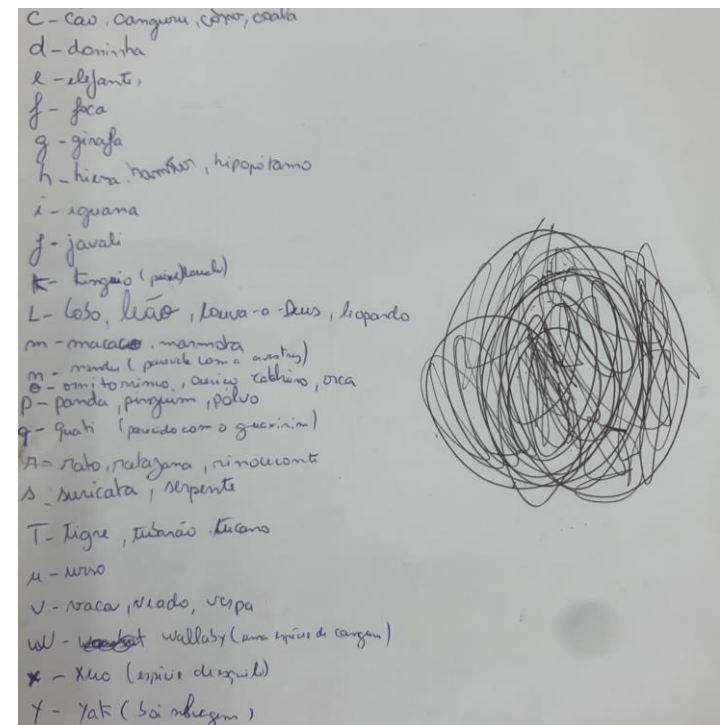 C - cão, canguru, corvo, coala
d - doninha
e - elefante,
f - foca
g - girafa
h - hiena, hamster, hipopótamo
i - iguana
j - javali
K - kinguio
L - Lobo, leão, louva-a-Deus, leopardo
m - macaco, marmota
n - nandu (parecido com a avestruz)
o - ornitorrinco, ouriço cacheiro, orca
p - panda, pinguim, polvo
q - quati (parecido com o guaxinim)
r - rato, ratazana, rinoceronte
s - suricata, serpente
T - Tigre, tubarão, tucano
u - urso
v - vaca, veado, vespa
W - wallaby (uma espécie de canguru)
x - xuo (espécie de esquilo)
Y - Yak (boi selvagem)